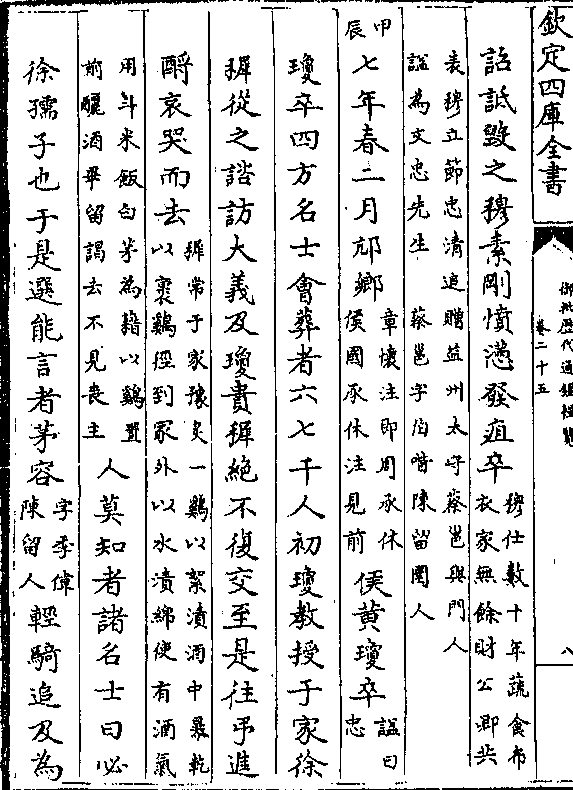 欽定四庫全書
御批歷代通鑑輯覽
卷二十五
八
詔詆毀之穆素剛憤懣發疽卒
穆仕數十年蔬食布
衣家無餘財公卿共
表穆立節忠清追贈益州太守蔡邕與門人
諡為文忠先生 蔡邕字伯喈陳留圉人
甲
辰
七年春二月邟鄉
章懷注即周承休
侯國承休注見前
侯黃瓊卒
諡曰
忠
瓊卒四方名士會葬者六七千人初瓊教授于家徐
穉從之諮訪大義及瓊貴穉絶不復交至是往弔進
酹哀哭而去
穉常于家豫炙一鷄以絮漬酒中暴乾
以裹鷄徑到冢外以水漬綿使有酒氣
用斗米飯白茅為藉以鷄置
前釃酒畢留謁去不見喪主
人莫知者諸名士曰必
徐孺子也于是選能言者茅容
字季偉
陳留人
輕騎追及為